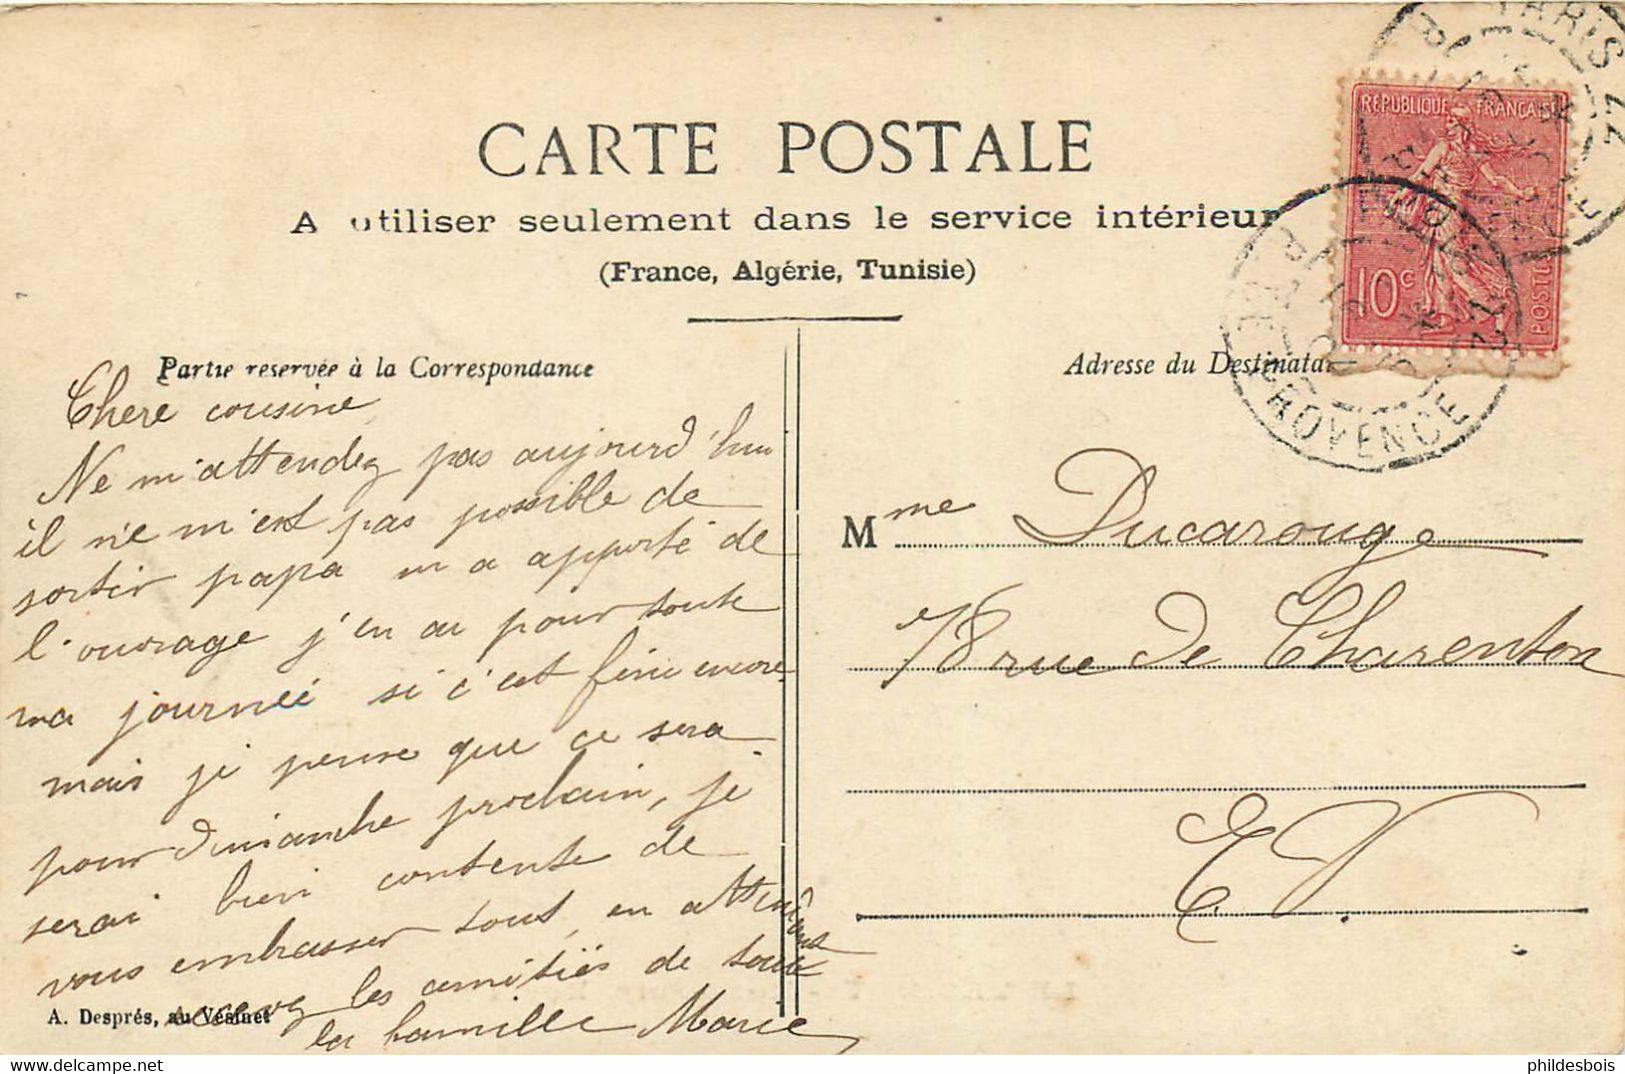 CARTE POSTALE
A utiliser seulement dans le service intérieur
(France, Algérie, Tunisie)
RÉPUBLIQUE FRANÇAISE
10 c
POSTES
PARIS 22
PARIS 22
R. DE PROVENCE
Partie reservée à la Correspondance
Adresse du Destinatai
Chere cousine,
Ne m'attendez pas aujourd'hui
il ne m'est pas possible de
sortir papa m a apporté de
l'ouvrage j'en ai pour toute
ma journée si c'est fini encore
mais je pense que ce sera
pour dimanche prochain, je
serai bien contente de
vous embrasser tous, en attendant
recevez les amitiés de toute
la famille Marie
Mme Ducarouge
78 rue de Charenton
E. V.
A. Després, au Vésinet
phildesbois